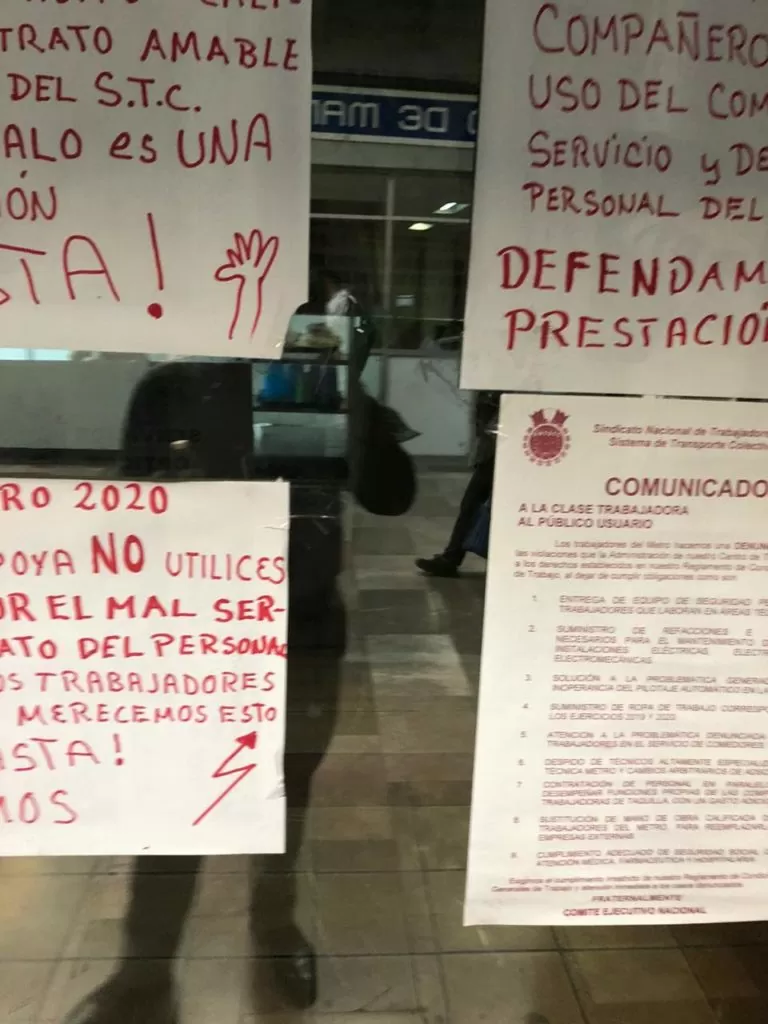 TRATO AMABLE
DEL S.T.C.
ALO es UNA
IÓN
STA!
COMPAÑERO
USO DEL COM
SERVICIO y DE
PERSONAL DEL
DEFENDAM
PRESTACIO
DE MAN
RO 2020
POYA NO UTILICES
OR EL MAL SER-
ATO DEL PERSONAL
OS TRABAJADORES
MERECEMOS ESTO
ASTA!
MOS
Sindicato Nacional de Trabajadores
Sistema de Transporte Colectiv
COMUNICADO
A LA CLASE TRABAJADORA
AL PÚBLICO USUARIO
Los trabajadores del Metro hacemos una DENUN
las violaciones que la Administración de nuestro Centro de T
a los derechos establecidos en nuestro Reglamento de Con
de Trabajo, al dejar de cumplir obligaciones como son:
1. ENTREGA DE EQUIPO DE SEGURIDAD PE
TRABAJADORES QUE LABORAN EN ÁREAS TÉC
2. SUMINISTRO DE REFACCIONES E
NECESARIOS PARA EL MANTENIMIENTO D
INSTALACIONES ELÉCTRICAS, ELECTR
ELECTROMECÁNICAS.
3. SOLUCIÓN A LA PROBLEMÁTICA GENERAD
INOPERANCIA DEL PILOTAJE AUTOMÁTICO EN LA
4. SUMINISTRO DE ROPA DE TRABAJO CORRESPO
LOS EJERCICIOS 2019 Y 2020.
5. ATENCIÓN A LA PROBLEMÁTICA DENUNCIADA
TRABAJADORES EN EL SERVICIO DE COMEDORES
6. DESPIDO DE TÉCNICOS ALTAMENTE ESPECIALI
TÉCNICA METRO Y CAMBIOS ARBITRARIOS DE ADSC
7. CONTRATACIÓN DE PERSONAL EN PARALEL
DESEMPEÑAR FUNCIONES PROPIAS DE LAS COMP
TRABAJADORAS DE TAQUILLA, CON UN GASTO ADICIO
8. SUSTITUCIÓN DE MANO DE OBRA CALIFICADA D
TRABAJADORES DEL METRO, PARA REEMPLAZARL
EMPRESAS EXTERNAS.
9. CUMPLIMIENTO ADECUADO DE SEGURIDAD SOCIAL
ATENCIÓN MÉDICA, FARMACÉUTICA Y HOSPITALARIA.
Exigimos el cumplimiento irrestricto de nuestro Reglamento de Condi
Generales de Trabajo y atención inmediata a los casos denunciados.
FRATERNALMENTE
COMITÉ EJECUTIVO NACIONAL